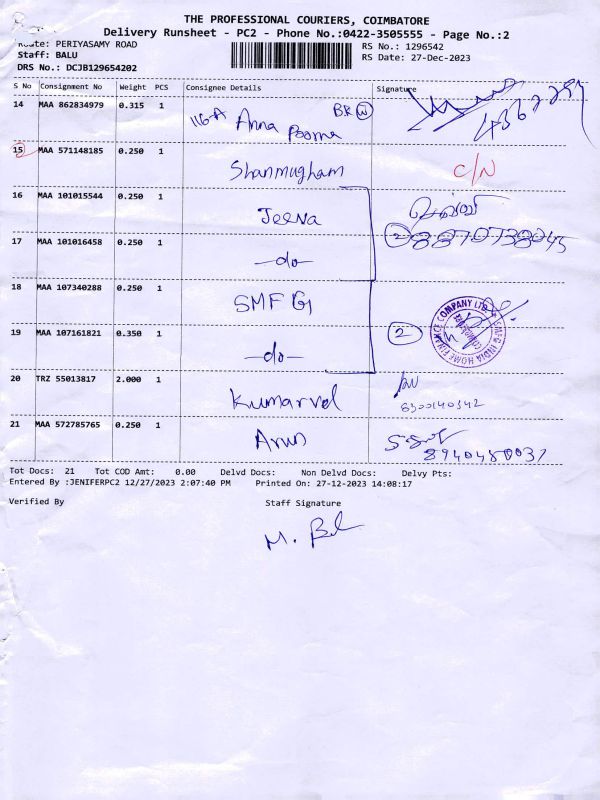 THE PROFESSIONAL COURIERS, COIMBATORE
Delivery Runsheet - PC2 - Phone No.:0422-3505555 - Page No.:2
Route: PERIYASAMY ROAD
RS No.: 1296542
Staff: BALU
RS Date: 27-Dec-2023
DRS No.: DCJB129654202
S No Consignment No Weight PCS Consignee Details Signature
14 MAA 862834979 0.315 1 116-A Anna Poorna BK W
15 MAA 571148185 0.250 1 Shanmugham C/N
16 MAA 101015544 0.250 1 Jeeva
17 MAA 101016458 0.250 1 -do- 2 8870738045
18 MAA 107340288 0.250 1 SMFG
19 MAA 107161821 0.350 1 -do- 2
SMFG INDIA HOME FINANCE COMPANY LTD.
20 TRZ 55013817 2.000 1 Kumarvel
6300140342
21 MAA 572785765 0.250 1 Arun
8940480037
Tot Docs: 21 Tot COD Amt: 0.00 Delvd Docs: Non Delvd Docs: Delvy Pts:
Entered By :JENIFERPC2 12/27/2023 2:07:40 PM Printed On: 27-12-2023 14:08:17
Verified By Staff Signature